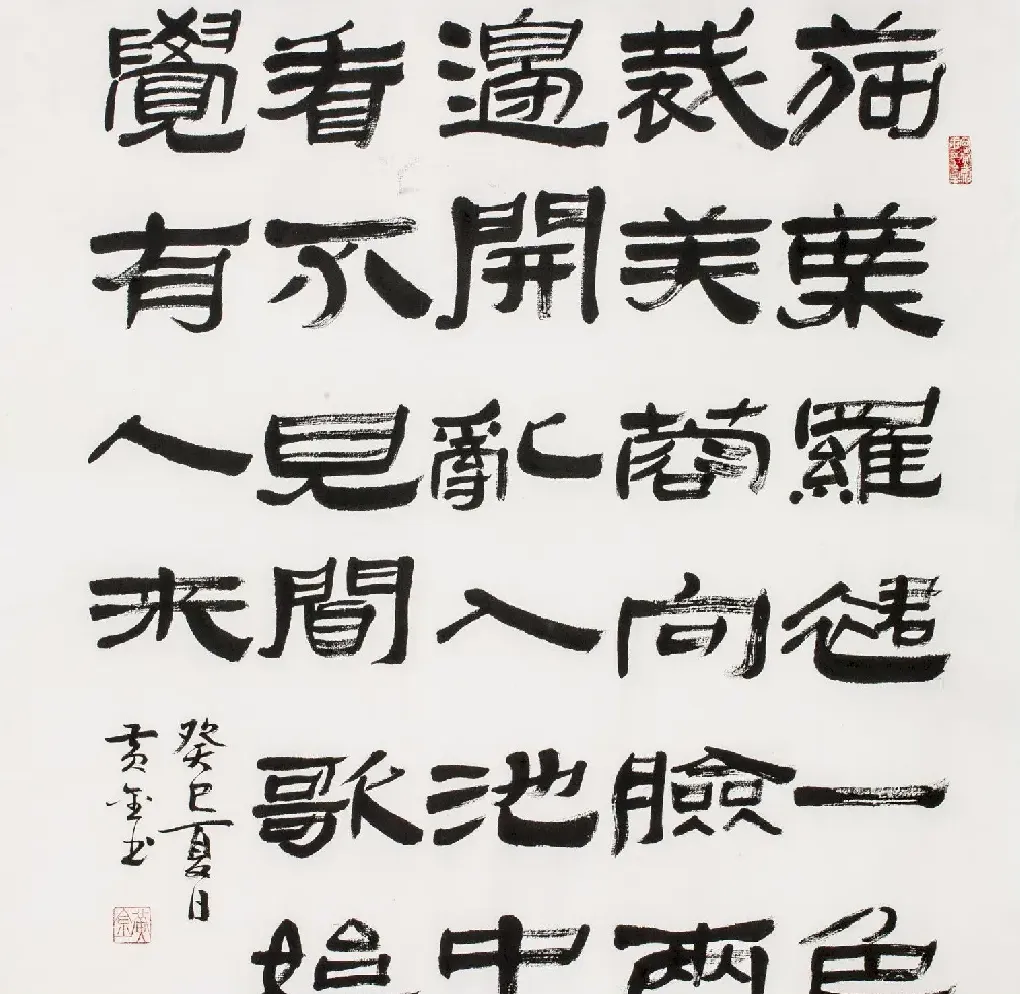 荷葉羅裙一色
裁芙蓉向臉兩
邊開亂入池中
看不見聞歌始
覺有人來
癸巳夏日
黄金书